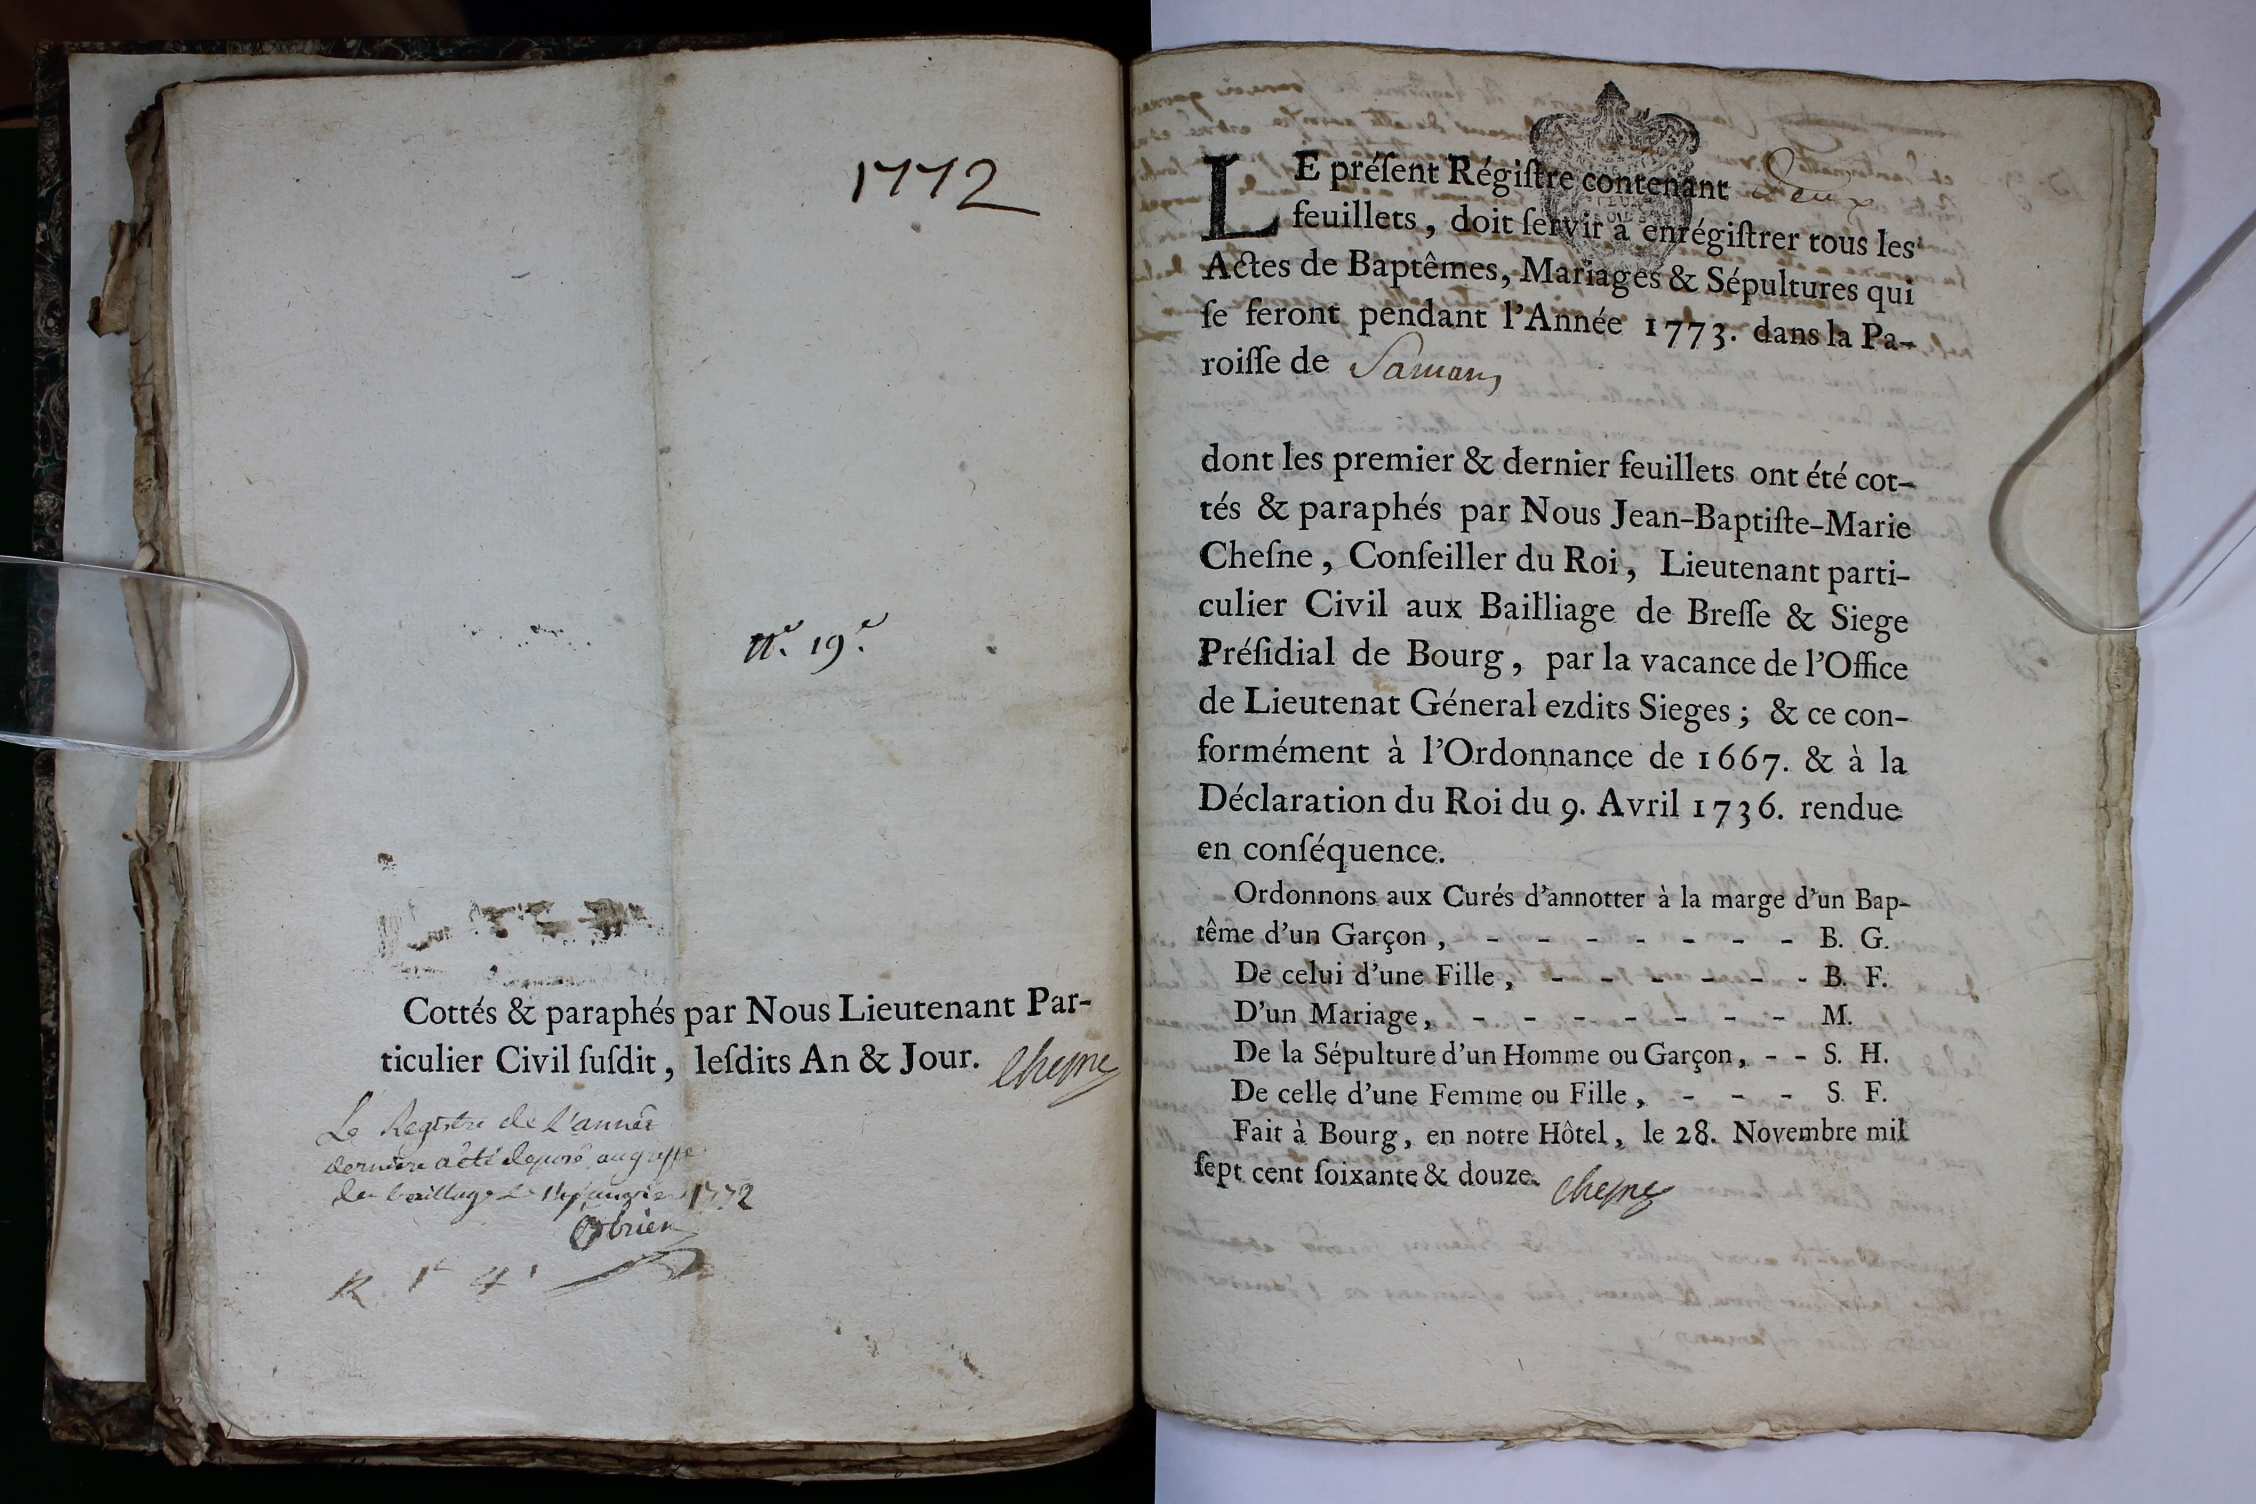 1772
n.º 19.e
Cottés & paraphés par Nous Lieutenant Par-
ticulier Civil ſuſdit, leſdits An & Jour. Cheſne
Le Registre de l'année
derniere a été deposé au greffe
du bailliage le 14 janvier 1772
Obrien
R. 1 4
LE préſent Régiſtre contenant deux
feuillets, doit ſervir à enrégiſtrer tous les
Actes de Baptêmes, Mariages & Sépultures qui
ſe feront pendant l'Année 1773. dans la Pa-
roiſſe de Samans
dont les premier & dernier feuillets ont été cot-
tés & paraphés par Nous Jean-Baptiſte-Marie
Cheſne, Conſeiller du Roi, Lieutenant parti-
culier Civil aux Bailliage de Breſſe & Siege
Préſidial de Bourg, par la vacance de l'Office
de Lieutenat Géneral ezdits Sieges; & ce con-
formément à l'Ordonnance de 1667. & à la
Déclaration du Roi du 9. Avril 1736. rendue
en conſéquence.
Ordonnons aux Curés d'annotter à la marge d'un Bap-
tême d'un Garçon, - - - - - - - B. G.
De celui d'une Fille, - - - - - - B. F.
D'un Mariage, - - - - - - - M.
De la Sépulture d'un Homme ou Garçon, - - S. H.
De celle d'une Femme ou Fille, - - - S. F.
Fait à Bourg, en notre Hôtel, le 28. Novembre mil
ſept cent ſoixante & douze. Cheſne